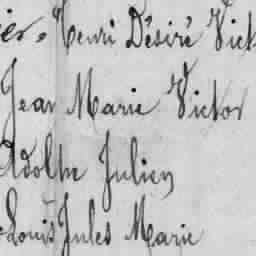 ier, Henri Désiré Vict
Jean Marie Victor
Adolphe Julien
Louis Jules Marie